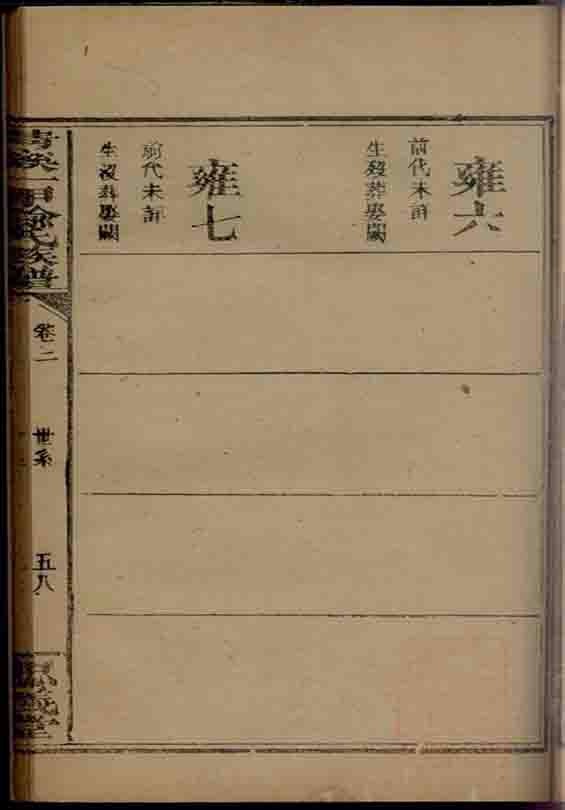 雍六
前代未詳
生歿葬娶闕
雍七
前代未詳
生沒葬娶闕
氏族譜
卷二
世系
五八
堂